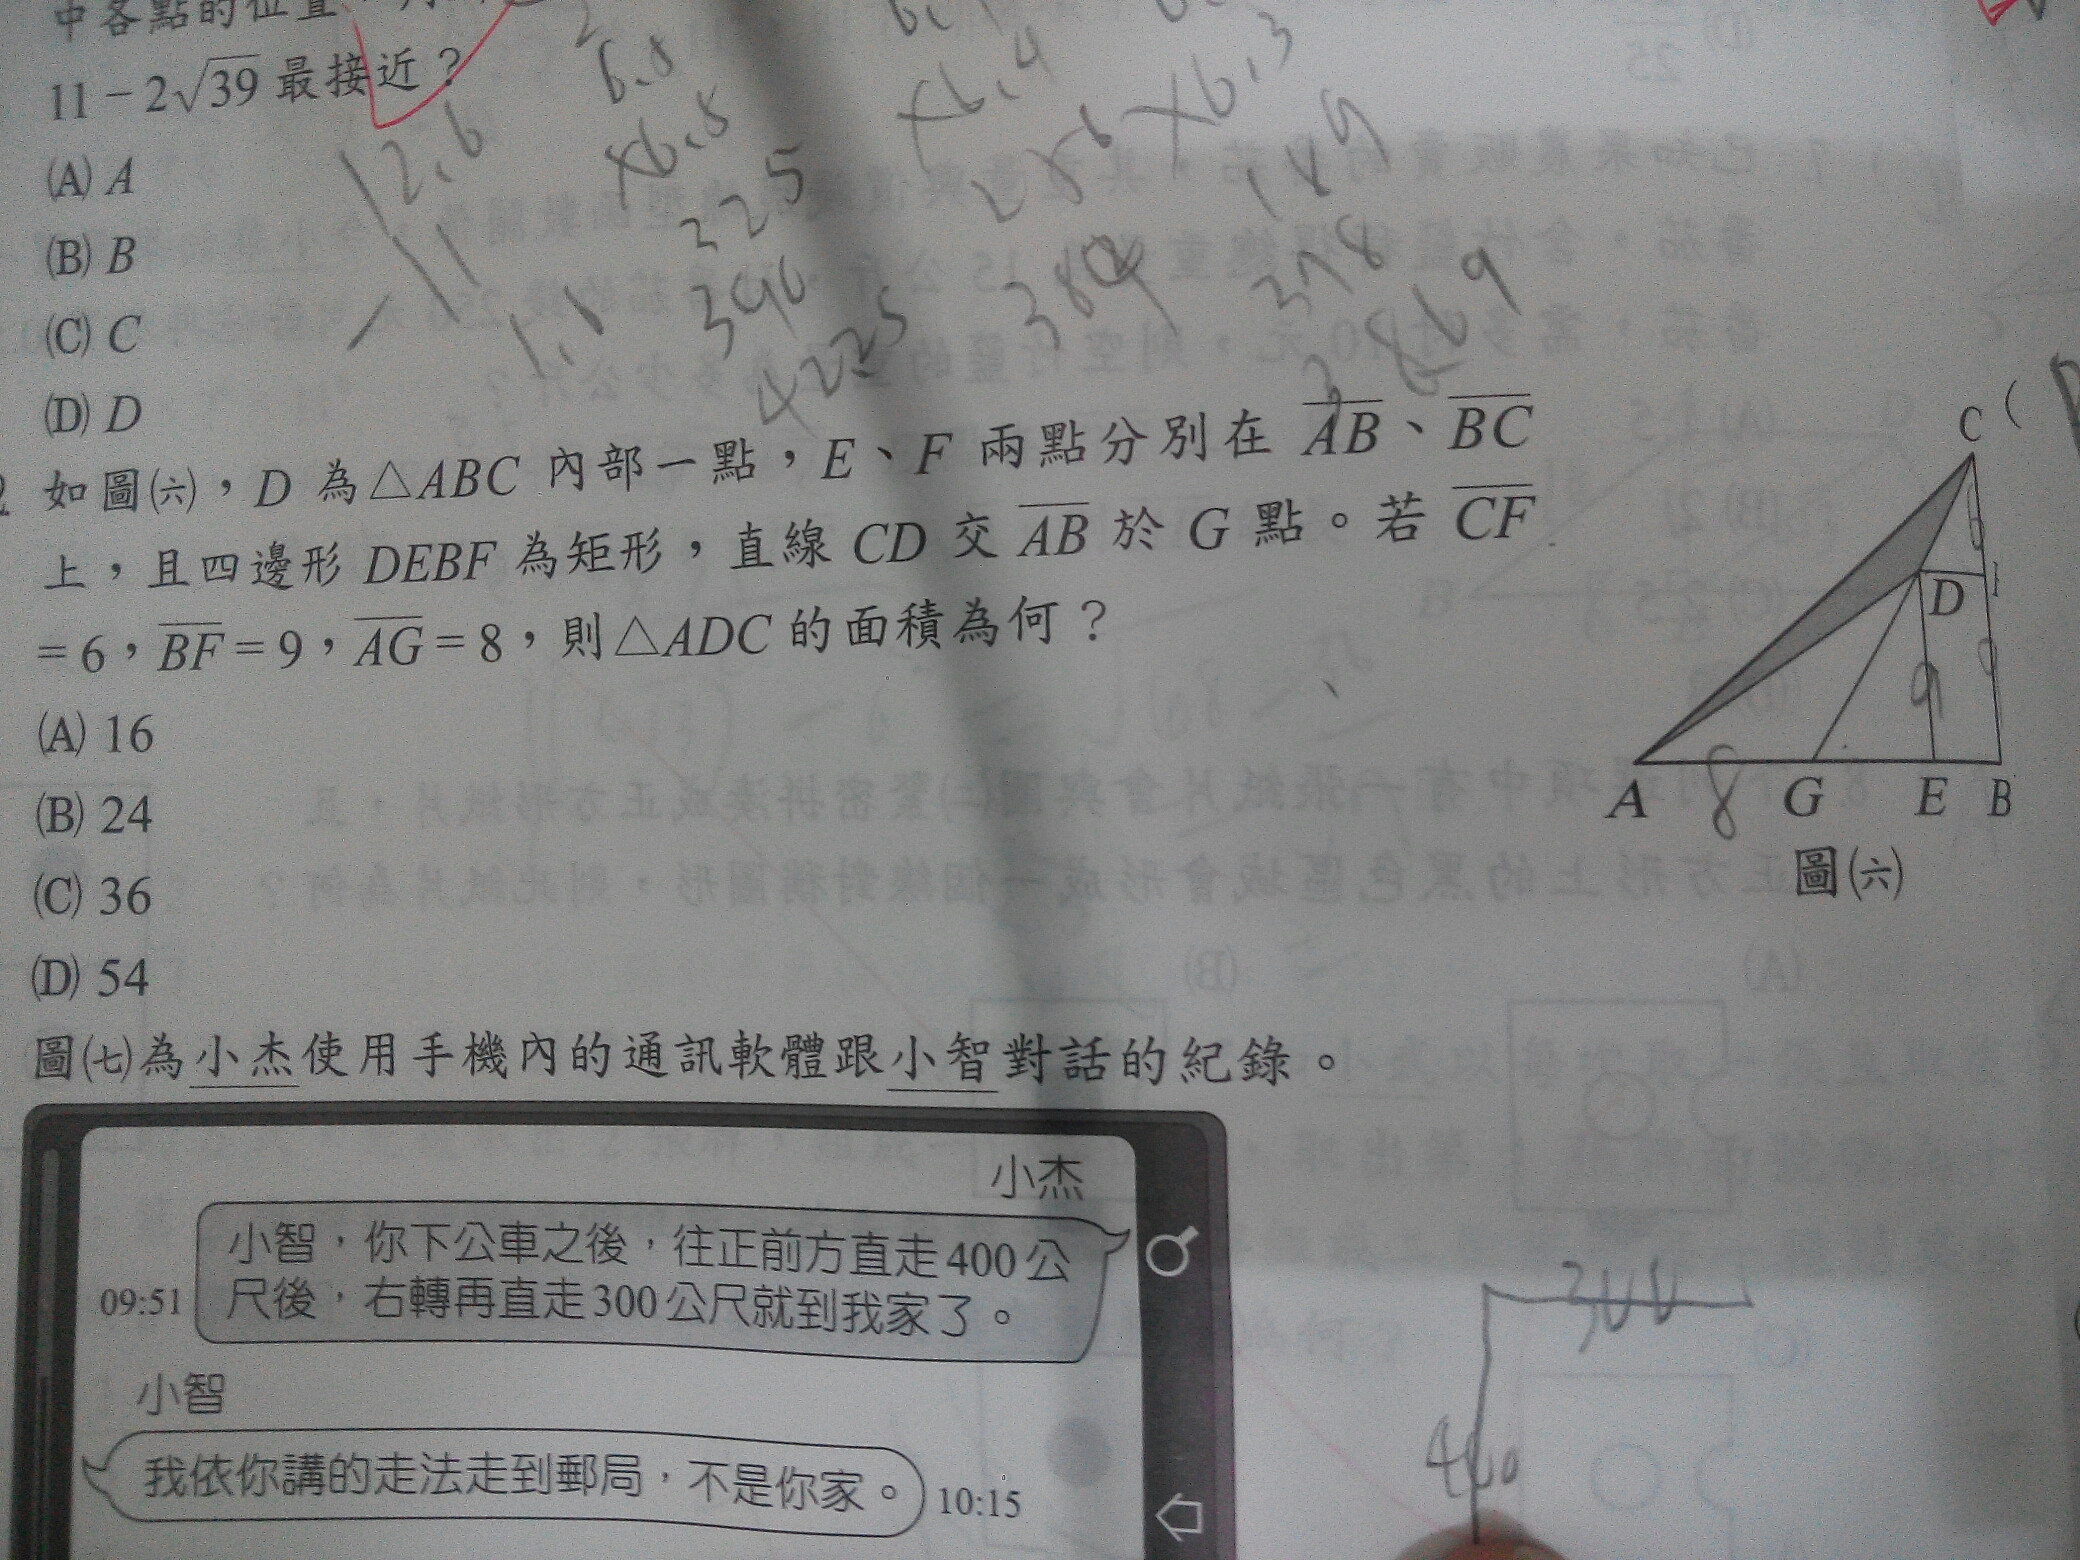 中各點的位置
11-2√39 最接近？
(A) A
(B) B
(C) C
(D) D
12.6
-11
1.6
6.5
×6.5
325
390
4225
×6.4
256
384
×6.3
189
378
3869
如圖㈥，D 為△ABC 內部一點，E、F 兩點分別在 AB、BC
上，且四邊形 DEBF 為矩形，直線 CD 交 AB 於 G 點。若 CF
=6，BF=9，AG=8，則△ADC 的面積為何？
(A) 16
(B) 24
(C) 36
(D) 54
C
D
9
A 8 G E B
圖㈥
圖㈦為小杰使用手機內的通訊軟體跟小智對話的紀錄。
小杰
小智，你下公車之後，往正前方直走400公
09:51 尺後，右轉再直走300公尺就到我家了。
小智
我依你講的走法走到郵局，不是你家。 10:15
300
400